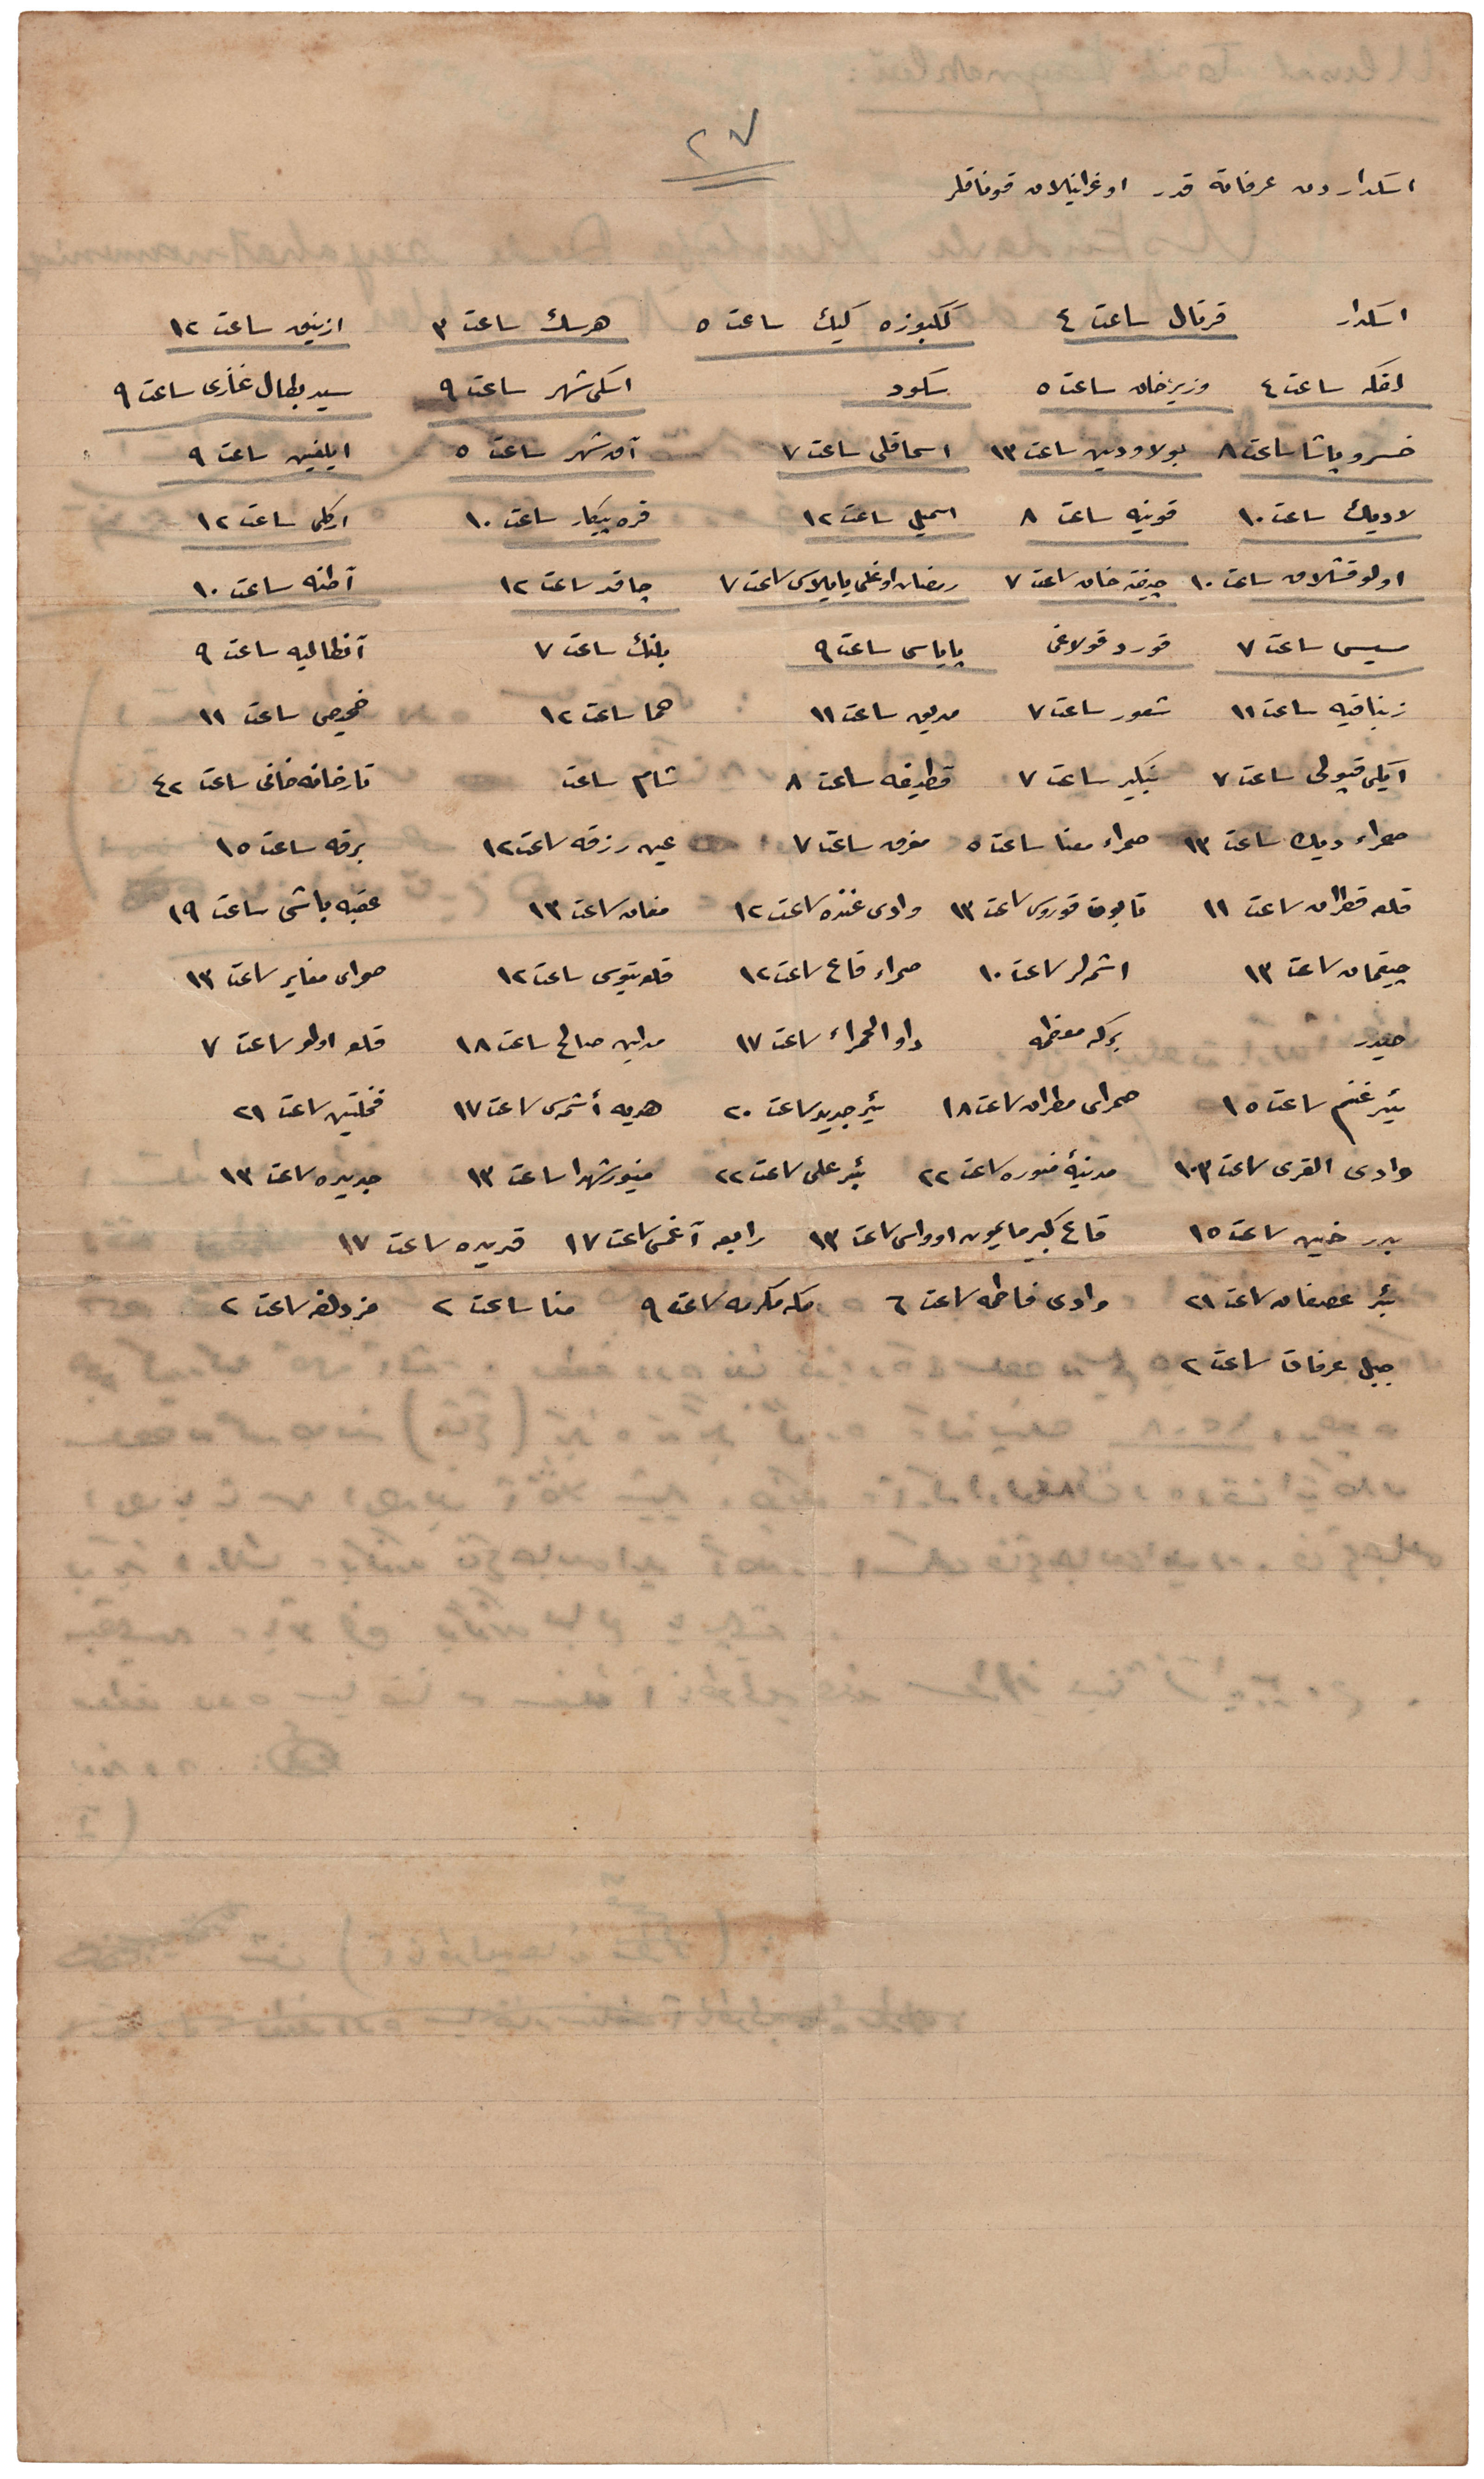 ٢٧
اسكداردن عرفاته قدر اوغرانيلان قوناقلر
اسكدار قرتال ساعت ٤ ككبوزه كبك ساعت ٥ هرسك ساعت ٣ ازنيق ساعت ١٢
لفكه ساعت ٤ وزيرخان ساعت ٥ سكود اسكى شهر ساعت ٩ سيد بطال غازى ساعت ٩
خسرو پاشا ساعت ٨ بولاودين ساعت ١٣ اسحاقلى ساعت ٧ آق شهر ساعت ٥ ايلغين ساعت ٩
لاديك ساعت ١٠ قونيه ساعت ٨ اسميل ساعت ١٢ قره پيكار ساعت ١٠ اركلى ساعت ١٢
اولوقشلاق ساعت ١٠ چفته خان ساعت ٧ رمضان اوغلى يايلاسى ساعت ٧ چاقد ساعت ١٢ آطنه ساعت ١٠
سيس ساعت ٧ قورد قولاغى پاياس ساعت ٩ بلنك ساعت ٧ آنطاليه ساعت ٩
زنباقيه ساعت ١١ شعور ساعت ٧ مديق ساعت ١١ حما ساعت ١٢ حمص ساعت ١١
ايكى قپولى ساعت ٧ نبكير ساعت ٧ قطيفه ساعت ٨ شام ساعت تارخانه خانى ساعت ٤٢
صحراء ديك ساعت ١٣ صحراء معنا ساعت ٥ مفرق ساعت ٧ عين رزقه ساعت ١٢ برقه ساعت ١٥
قلعه قطران ساعت ١١ تابوت قوروسى ساعت ١٣ وادى عنزه ساعت ١٢ معان ساعت ١٣ عقبه باشى ساعت ١٩
چيقمان ساعت ١٣ اشمه لر ساعت ١٠ صحراء قاع ساعت ١٢ قلعه تبوك ساعت ١٢ صحراى مغاير ساعت ١٣
حيدر بركه معظمه دار الحمراء ساعت ١٧ مداين صالح ساعت ١٨ قلعه اولو ساعت ٧
بئر غنم ساعت ١٥ صحراى مطران ساعت ١٨ بئر جديد ساعت ٢٠ هديه أشمه سى ساعت ١٧ فحلتين ساعت ٢١
وادى القرى ساعت ١٠٣ مدينهٔ منوره ساعت ٢٢ بئر على ساعت ٢٢ قبور شهدا ساعت ١٣ جديده ساعت ١٣
بدر حنين ساعت ١٥ قاع كبير مايمون اوواسى ساعت ١٣ رابعه آغسى ساعت ١٧ قديده ساعت ١٧
بئر عصفان ساعت ٢١ وادى فاطمه ساعت ٦ مكه مكرمه ساعت ٩ منا ساعت ٢ مزدلفه ساعت ٢
جبل عرفات ساعت ٢